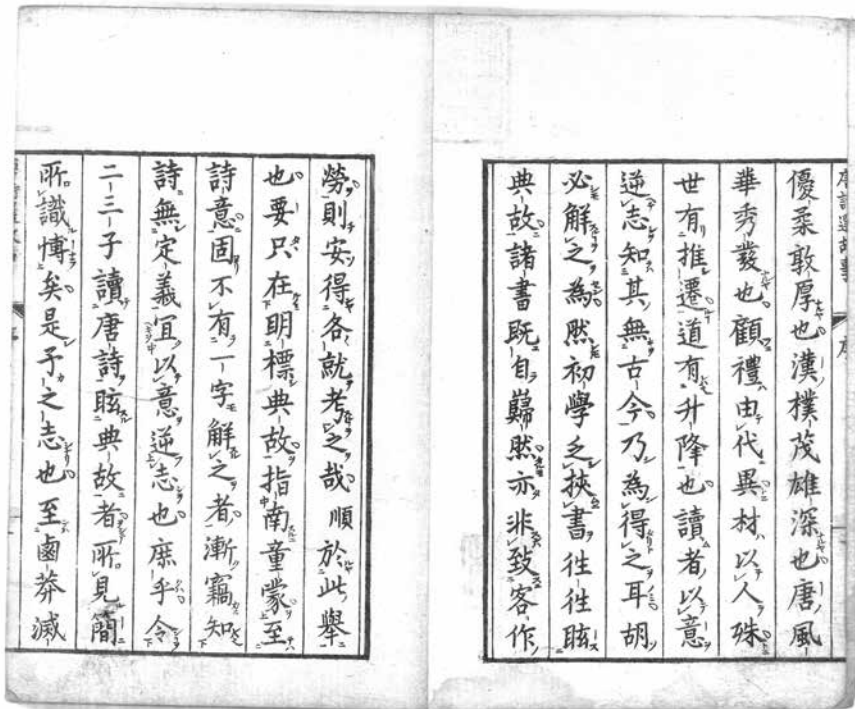 優柔敦厚也漢樸茂雄深也唐風
華秀發也顧禮由代異材以人殊
世有推遷道有升降也讀者以意
逆志知其無古今乃為得之耳胡
必解之為然初學乏挾書徃徃眩
典故諸書既自巋然亦非致客作
勞則安得各就考之哉順於此舉
也要只在明標典故指南童蒙至
詩意固不有一字解之者漸竊知
詩無定義宜以意逆志也庶乎令
二三子讀唐詩眩典故者所見簡
所識博矣是予之志也至鹵莽滅